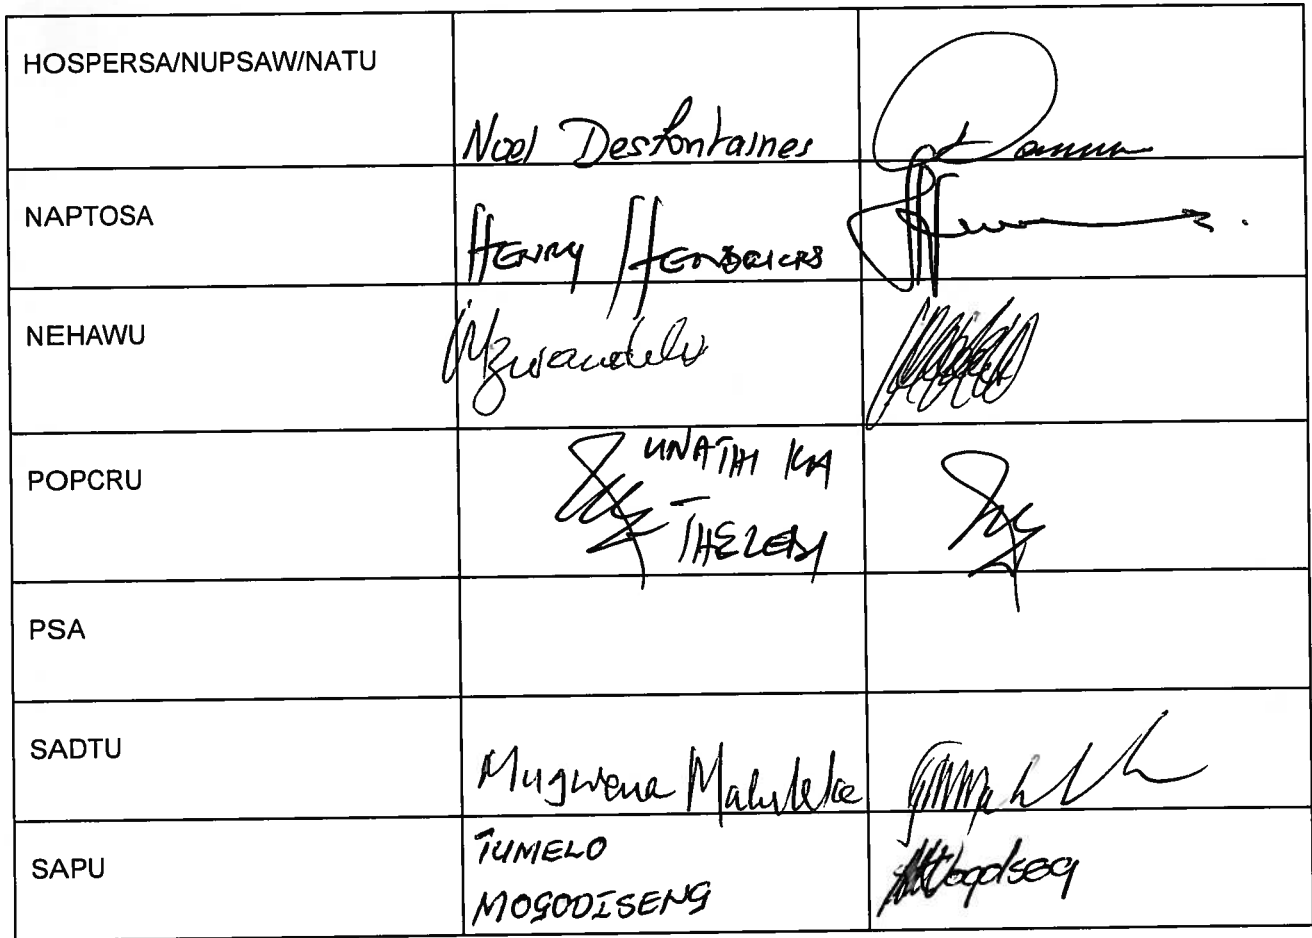 HOSPERSA/NUPSAW/NATU
Noel Desfontaines
NAPTOSA
HENRY HENDRICKS
NEHAWU
Mzwandile
POPCRU
UNATHI KA
THELEDI
PSA
SADTU
Mugwena Maluleke
SAPU
TUMELO
MOGODISENG